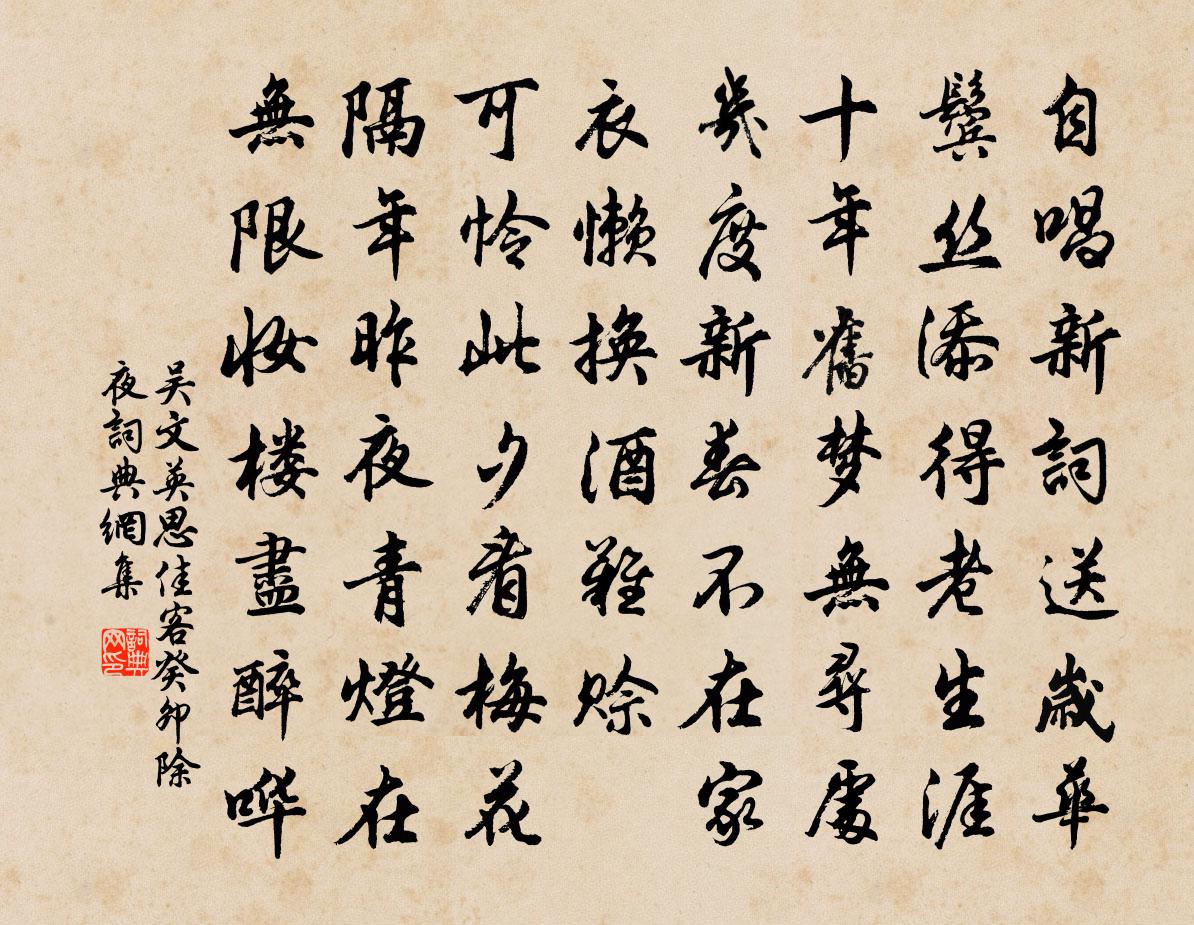 自唱新詞送歲華
鬢丝添得老生涯
十年舊梦無尋處
幾度新春不在家
衣懒換酒難赊
可怜此夕看梅花
隔年昨夜青燈在
無限妆楼盡醉哗
吴文英思佳客癸卯除
夜詞典網集
詞典网印